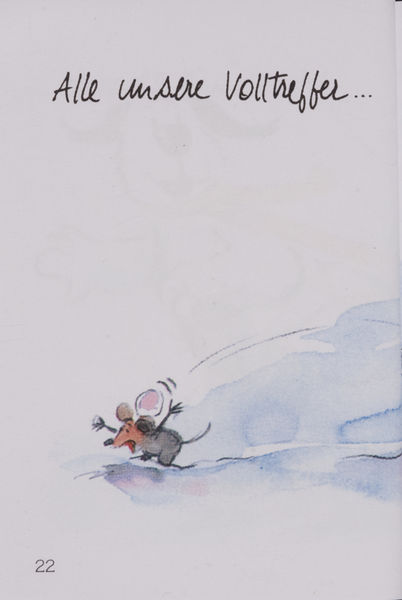 Alle unsere Volltreffer...
22